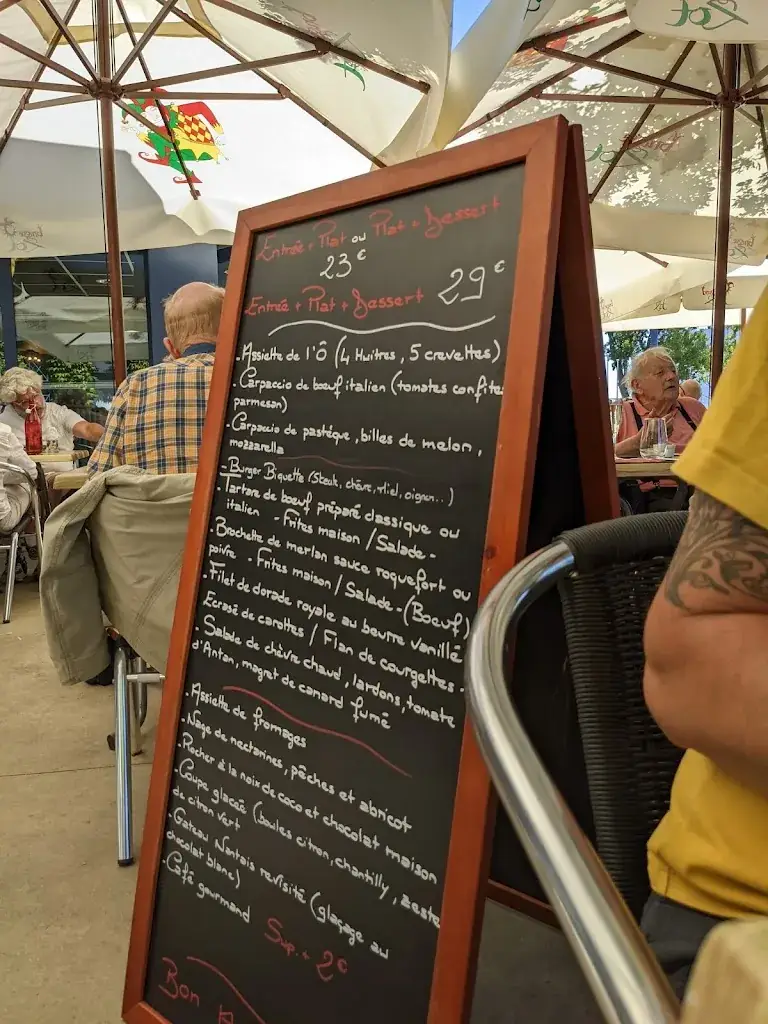 Entrée + Plat ou Plat + Dessert
23€
Entrée + Plat + Dessert 29€
. Assiette de l'Ô (4 Huitres, 5 crevettes)
. Carpaccio de bœuf italien (tomates confite
parmesan)
. Carpaccio de pastéque, billes de melon,
mozzarella
- Burger Biquette (Steak, chèvre, miel, oignon...)
. Tartare de bœuf préparé classique ou
italien - Frites maison / Salade -
. Brochette de merlan sauce roquefort ou
poivre - Frites maison / Salade - (Boeuf)
. Filet de dorade royale au beurre vanillé
Ecrasé de carottes / Flan de courgettes .
. Salade de chèvre chaud, lardons, tomate
d'Antan, magret de canard fumé
. Assiette de fromages
. Nage de nectarines, pêches et abricot
. Rocher à la noix de coco et chocolat maison
. Coupe glacée (boules citron, chantilly, zeste
de citron vert
. Gateau Nantais revisité (glaçage au
chocolat blanc)
. Café gourmand Sup. + 2€
Bon